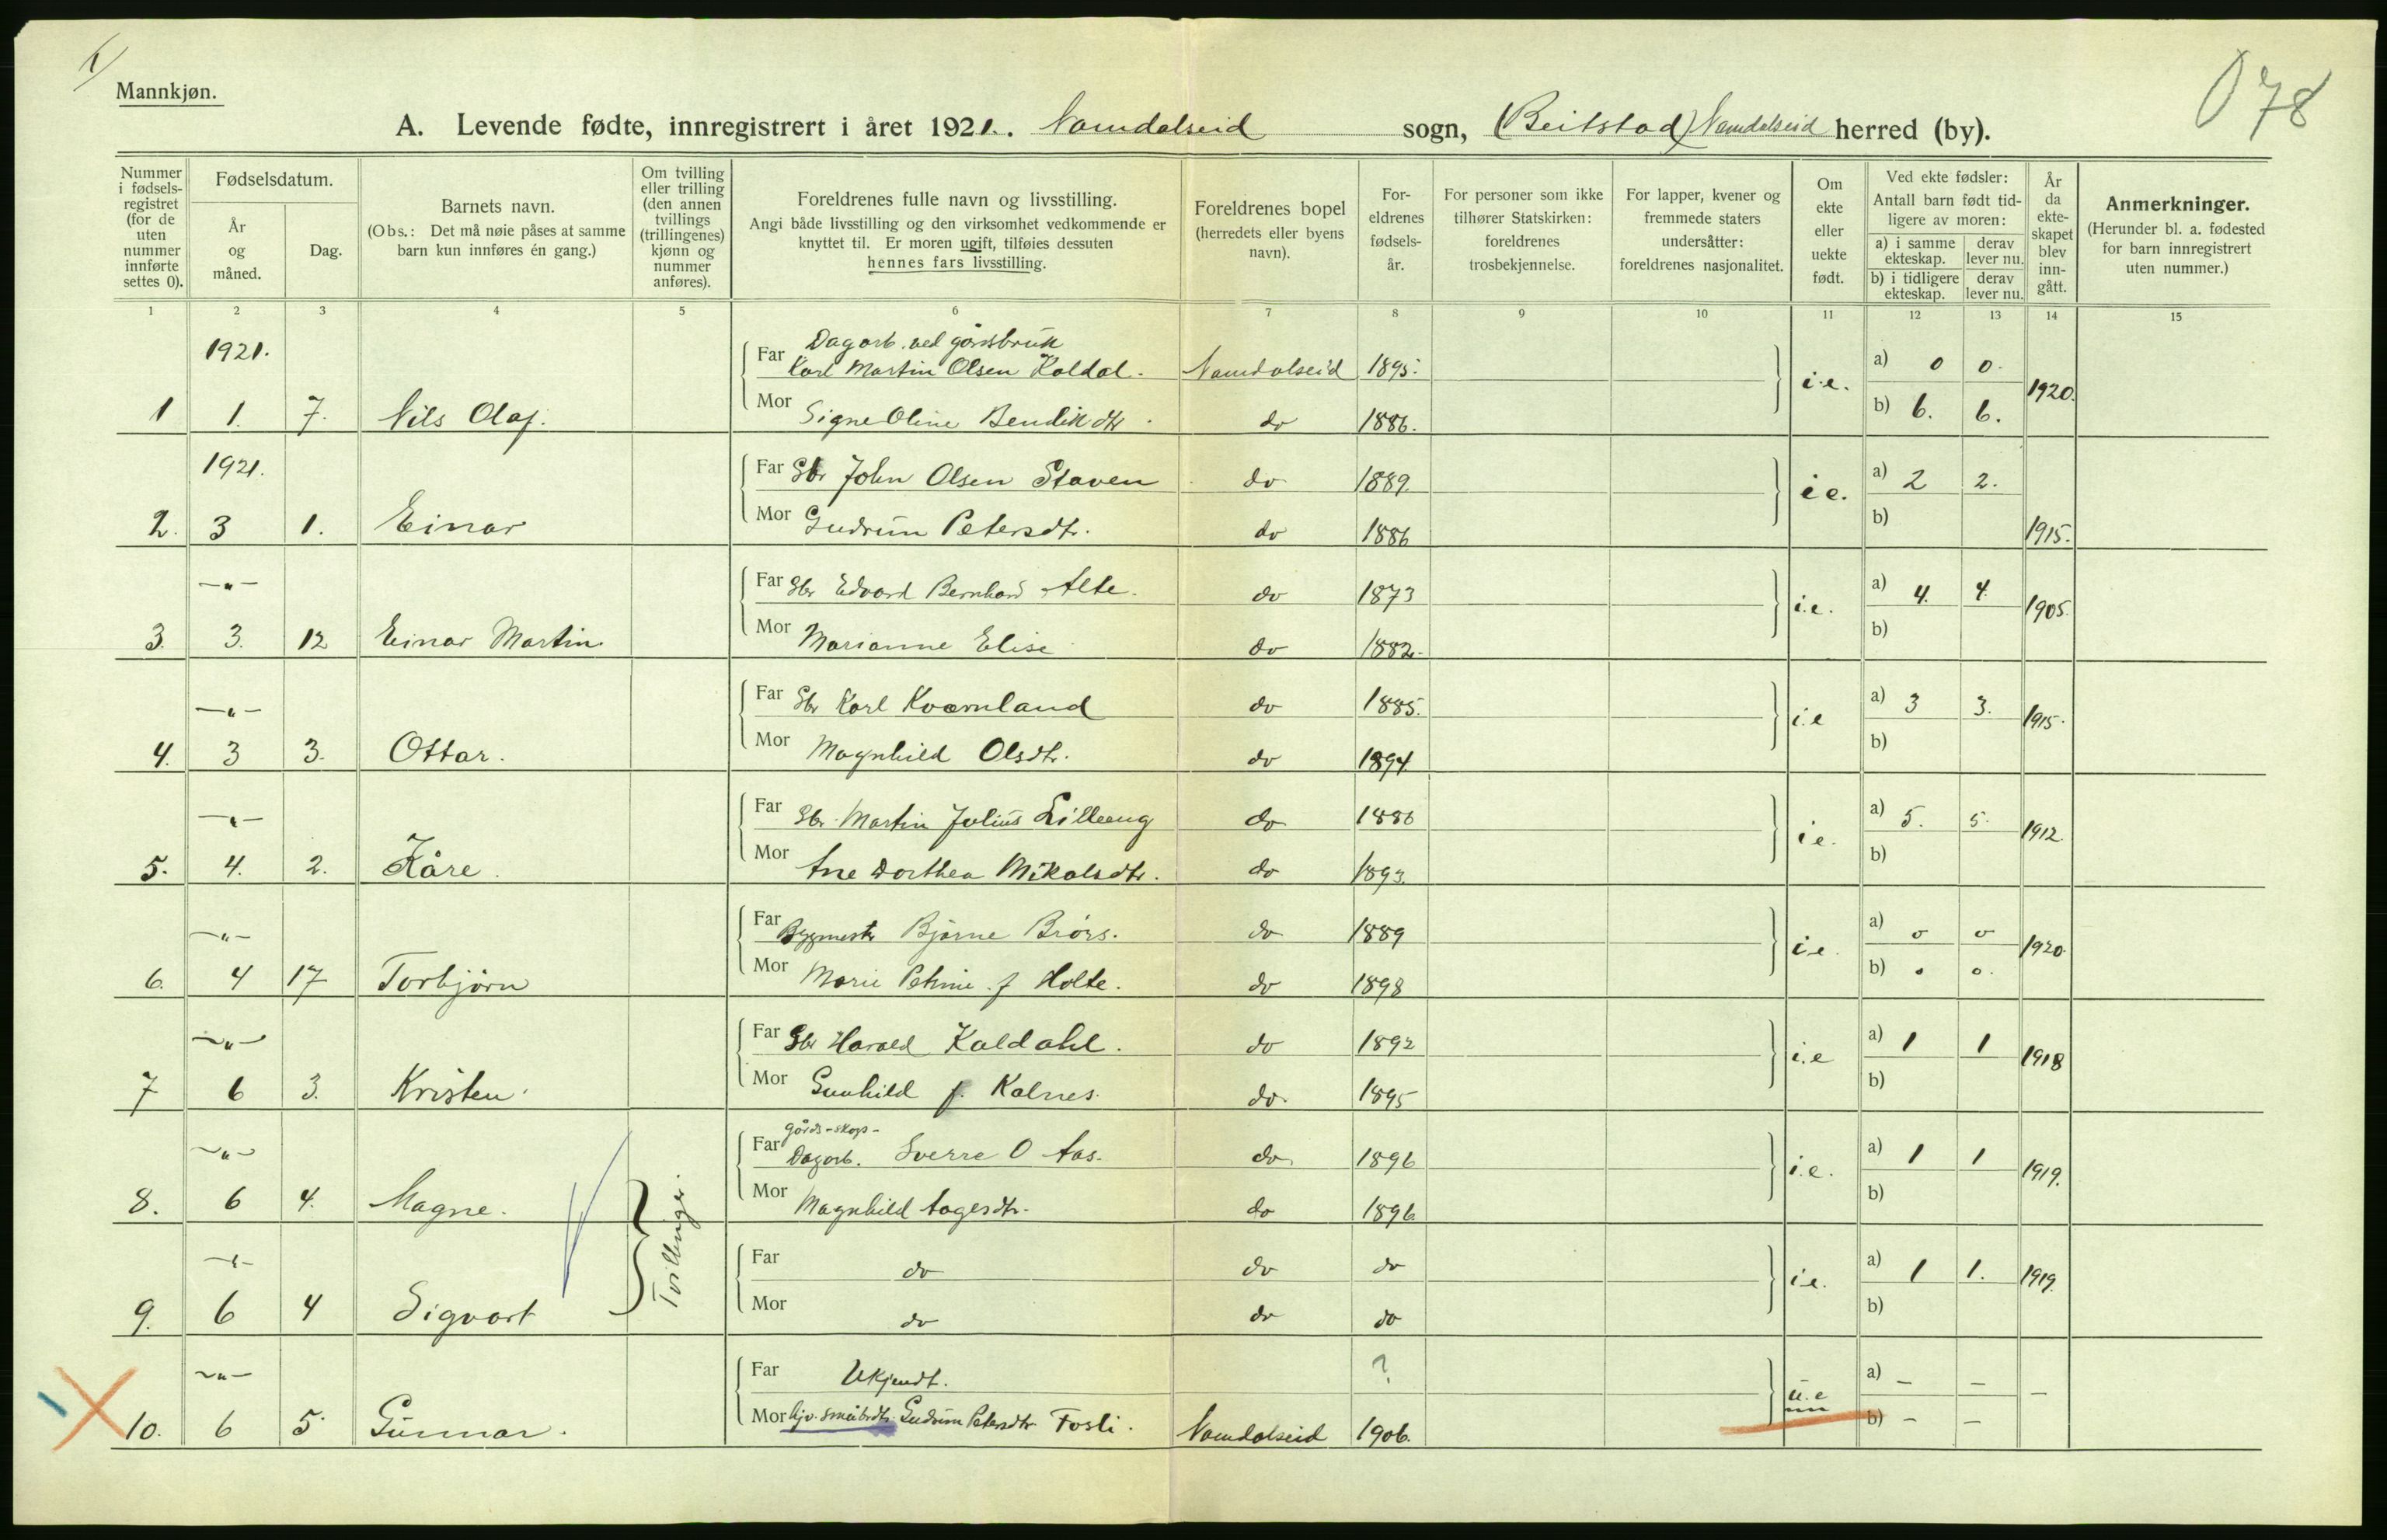 1)
078
Mannkjøn.
A. Levende fødte, innregistrert i året 1921. Namdalseid sogn, (Beitstad) Namdalseid herred (by).
Nummer i fødselsregistret (for de uten nummer innførte settes 0).
Fødselsdatum.
År og måned.
Dag.
Barnets navn.
(Obs.: Det må nøie påses at samme barn kun innføres én gang.)
Om tvilling eller trilling (den annen tvillings (trillingenes) kjønn og nummer anføres).
Foreldrenes fulle navn og livsstilling.
Angi både livsstilling og den virksomhet vedkommende er knyttet til. Er moren ugift, tilføies dessuten hennes fars livsstilling.
Foreldrenes bopel (herredets eller byens navn).
Foreldrenes fødselsår.
For personer som ikke tilhører Statskirken: foreldrenes trosbekjennelse.
For lapper, kvener og fremmede staters undersåtter: foreldrenes nasjonalitet.
Om ekte eller uekte født.
Ved ekte fødsler:
Antall barn født tidligere av moren:
a) i samme ekteskap. derav lever nu.
b) i tidligere ekteskap. derav lever nu.
År da ekteskapet blev inngått.
Anmerkninger.
(Herunder bl. a. fødested for barn innregistrert uten nummer.)
1 2 3 4 5 6 7 8 9 10 11 12 13 14 15
1921.
Far Dagarb. ved gårdsbruk
Karl Martin Olsen Kaldal. Namdalseid 1895. i.e. a) 0 0. 1920.
1 1. 7. Nils Olaf. Mor Signe Oline Bendikdtr. do 1886. b) 6. 6.
1921. Far Gbr John Olsen Staven do 1889. i e. a) 2 2.
2. 3 1. Einar Mor Gudrun Petersdtr. do 1886 b) 1915.
—"— Far Gbr Edvard Bernhard Alte. do 1873 i.e. a) 4. 4. 1905.
3. 3. 12 Einar Martin. Mor Marianne Elise do 1882. b)
—"— Far Gbr Karl Kværnland do 1885. i.e a) 3 3. 1915.
4. 3 3. Ottar. Mor Magnhild Olsdtr. do 1894. b)
—"— Far Gbr. Martin Julius Lilleeng do 1886 i e. a) 5. 5. 1912.
5. 4. 2. Kåre. Mor Ane Dorthea Mikalsdtr. do 1893. b)
—"— Far Bygmestr Bjarne Brørs. do 1889 i.e. a) 0 0 1920.
6. 4 17 Torbjørn Mor Marie Petrine f Holte. do 1898 b) 0 0.
—"— Far Gbr Harald Kaldahl. do 1892 i.e a) 1 1 1918
7 6 3. Kristen. Mor Gunhild f. Kalnes. do. 1895 b)
—"— Far Gårds-skogs-
Dagarb. Sverre O Aas. do 1896 i.e. a) 1 1 1919.
8. 6 4. Magne. Tvillinger. Mor Magnhild Aagesdtr. do 1896 b)
—"— Far do do do i.e. a) 1 1. 1919.
9. 6 4 Sigvart Mor do do do b)
—"— Far Ukjendt. ? u.e a) — — —
10. 6 5 Gunnar. Mor Gudrun Petersdtr Fosli. Namdalseid 1906. b) — —